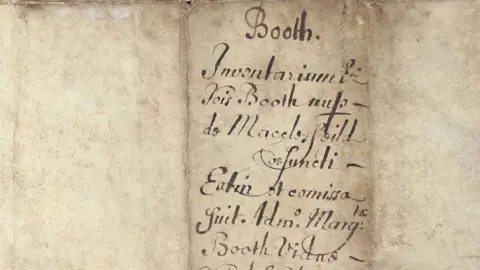 Booth.
Inventarium &c
Jois Booth nup –
de Macclesfeild
Defuncti –
Extin et comissa
fuit Admo. Margtæ
Booth Viduæ –